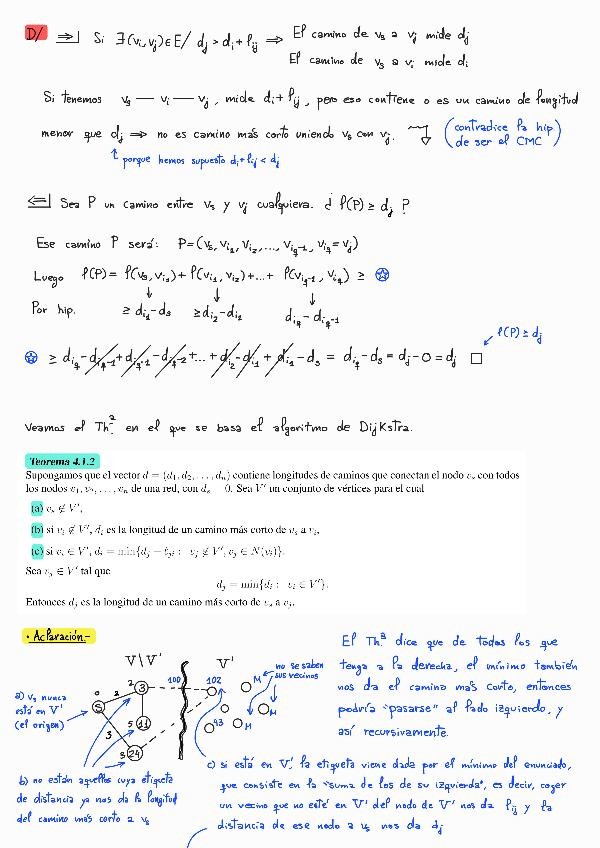 D/ ⟹| Si ∃(vᵢ,vⱼ)∈E/ dⱼ > dᵢ+ℓᵢⱼ ⟹ El camino de vₛ a vⱼ mide dⱼ
El camino de vₛ a vᵢ mide dᵢ
Si tenemos vₛ — vᵢ — vⱼ, mide dᵢ+ℓᵢⱼ, pero eso contiene o es un camino de longitud
menor que dⱼ ⟹ no es camino más corto uniendo vₛ con vⱼ. (contradice la hip. de ser el CMC)
porque hemos supuesto dᵢ+ℓᵢⱼ < dⱼ
⟸| Sea P un camino entre vₛ y vⱼ cualquiera. ¿ ℓ(P) ≥ dⱼ ?
Ese camino P será: P=(vₛ, v_{i₁}, v_{i₂}, ..., v_{i_{q-1}}, v_{i_q}=vⱼ)
Luego ℓ(P) = ℓ(vₛ,v_{i₁}) + ℓ(v_{i₁},v_{i₂}) + ... + ℓ(v_{i_{q-1}},v_{i_q}) ≥ ✪
Por hip. ≥ d_{i₁}-dₛ ≥ d_{i₂}-d_{i₁} d_{i_q}-d_{i_{q-1}}
ℓ(P) ≥ dⱼ
✪ ≥ d_{i_q}-d_{i_{q-1}}+d_{i_{q-1}}-d_{i_{q-2}}+...+d_{i₂}-d_{i₁}+d_{i₁}-dₛ = d_{i_q}-dₛ = dⱼ-0 = dⱼ □
Veamos el Thᵃ en el que se basa el algoritmo de Dijkstra.
Teorema 4.1.2
Supongamos que el vector d = (d₁, d₂, . . . , dₙ) contiene longitudes de caminos que conectan el nodo vₛ con todos
los nodos v₁, v₂, . . . , vₙ de una red, con dₛ = 0. Sea V′ un conjunto de vértices para el cual
(a) vₛ ∉ V′,
(b) si vᵢ ∉ V′, dᵢ es la longitud de un camino más corto de vₛ a vᵢ,
(c) si vᵢ ∈ V′, dᵢ = min{dⱼ + ℓⱼᵢ : vⱼ ∉ V′, vⱼ ∈ N(vᵢ)}.
Sea vⱼ ∈ V′ tal que
dⱼ = min{dᵢ : vᵢ ∈ V′}.
Entonces dⱼ es la longitud de un camino más corto de vₛ a vⱼ.
• Aclaración.-
V\V′ V′
a) vₛ nunca
está en V′
(el origen)
0 S 2 2 3 5 11 3 24
100 102 93 M M M
no se saben
sus vecinos
b) no están aquellos cuya etiqueta
de distancia ya nos da la longitud
del camino más corto a vₛ
El Thᵃ dice que de todos los que
tenga a la derecha, el mínimo también
nos da el camino más corto, entonces
podría "pasarse" al lado izquierdo, y
así recursivamente.
c) si está en V′ la etiqueta viene dada por el mínimo del enunciado,
que consiste en la "suma de los de su izquierda", es decir, coger
un vecino que no esté en V′ del nodo de V′ nos da ℓᵢⱼ y la
distancia de ese nodo a vₛ nos da dⱼ